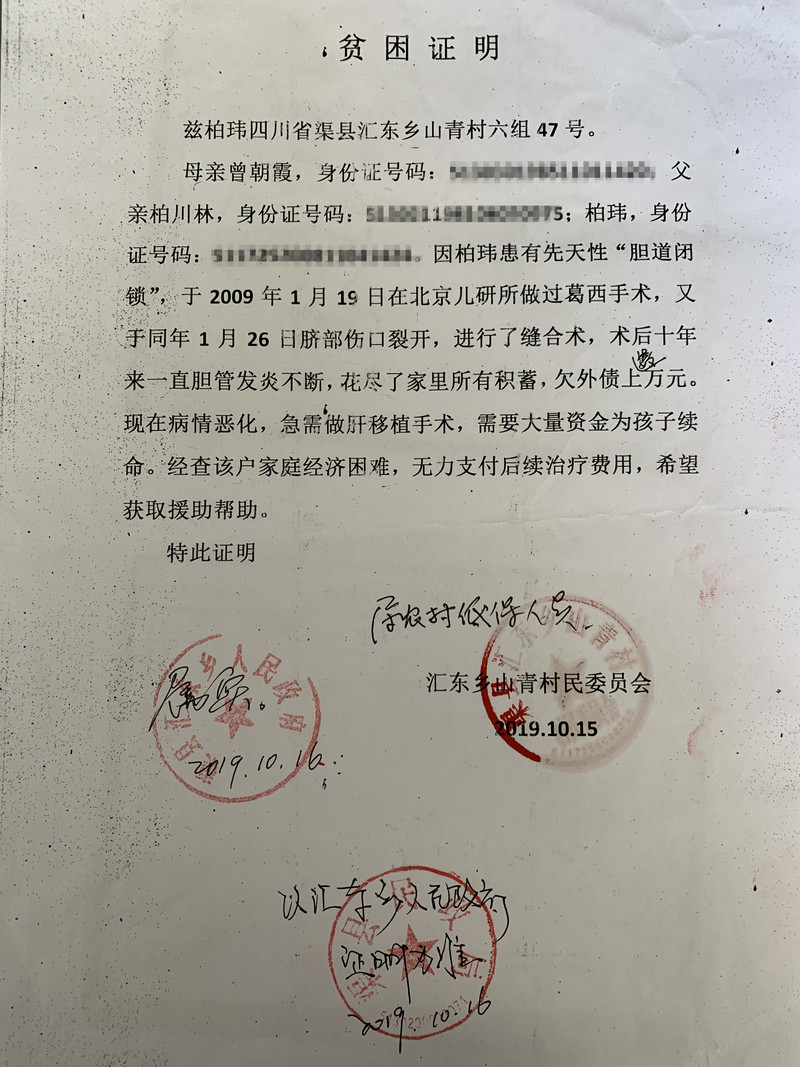 贫困证明
兹柏玮四川省渠县汇东乡山青村六组 47 号。
母亲曾朝霞，身份证号码：　　　　　　　　　，父
亲柏川林，身份证号码：　　　　　　　　　；柏玮，身份
证号码：　　　　　　　　　。因柏玮患有先天性“胆道闭
锁”，于 2009 年 1 月 19 日在北京儿研所做过葛西手术，又
于同年 1 月 26 日脐部伤口裂开，进行了缝合术，术后十年
数
来一直胆管发炎不断，花尽了家里所有积蓄，欠外债上万元。
现在病情恶化，急需做肝移植手术，需要大量资金为孩子续
命。经查该户家庭经济困难，无力支付后续治疗费用，希望
获取援助帮助。
特此证明
属农村低保人员.
汇东乡山青村民委员会
2019.10.15
渠县汇东乡山青村
渠县汇东乡人民政府
属实。
2019.10.16
以汇东乡人民政府
证明为准
2019.10.16